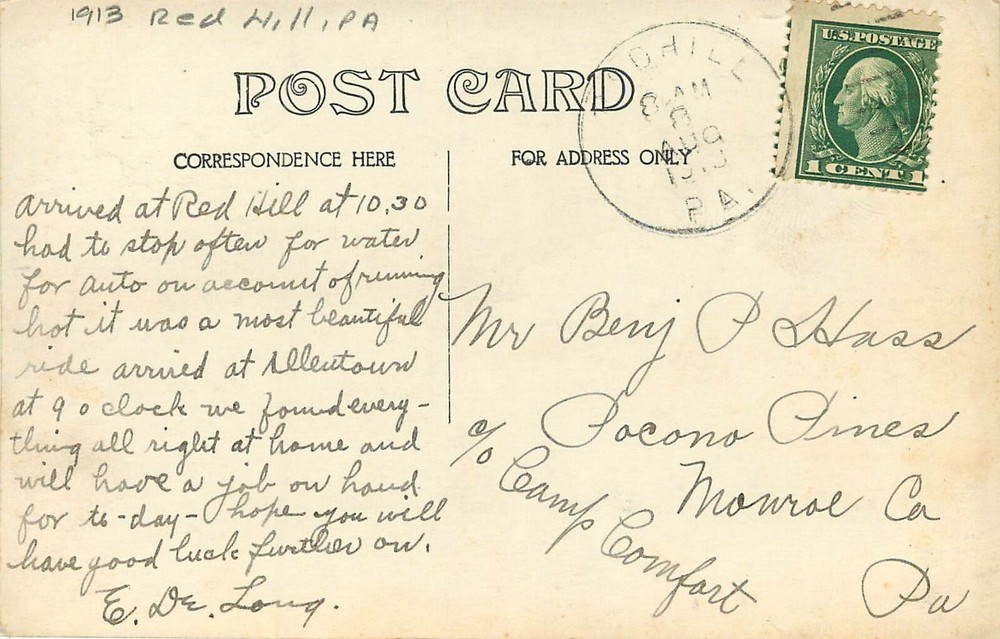 1913 Red Hill, PA
POST CARD
CORRESPONDENCE HERE
FOR ADDRESS ONLY
DHILL
8 AM
8
AUG
1913
PA.
U.S. POSTAGE
1 CENT 1
arrived at Red Hill at 10.30
had to stop often for water
for auto on account of running
hot it was a most beautiful
ride arrived at Allentown
at 9 o clock we found every-
thing all right at home and
will have a job on hand
for to-day- hope you will
have good luck further on.
E. De. Long.
Mr Benj P Hass
Pocono Pines
c/o Camp Comfort
Monroe Co
Pa